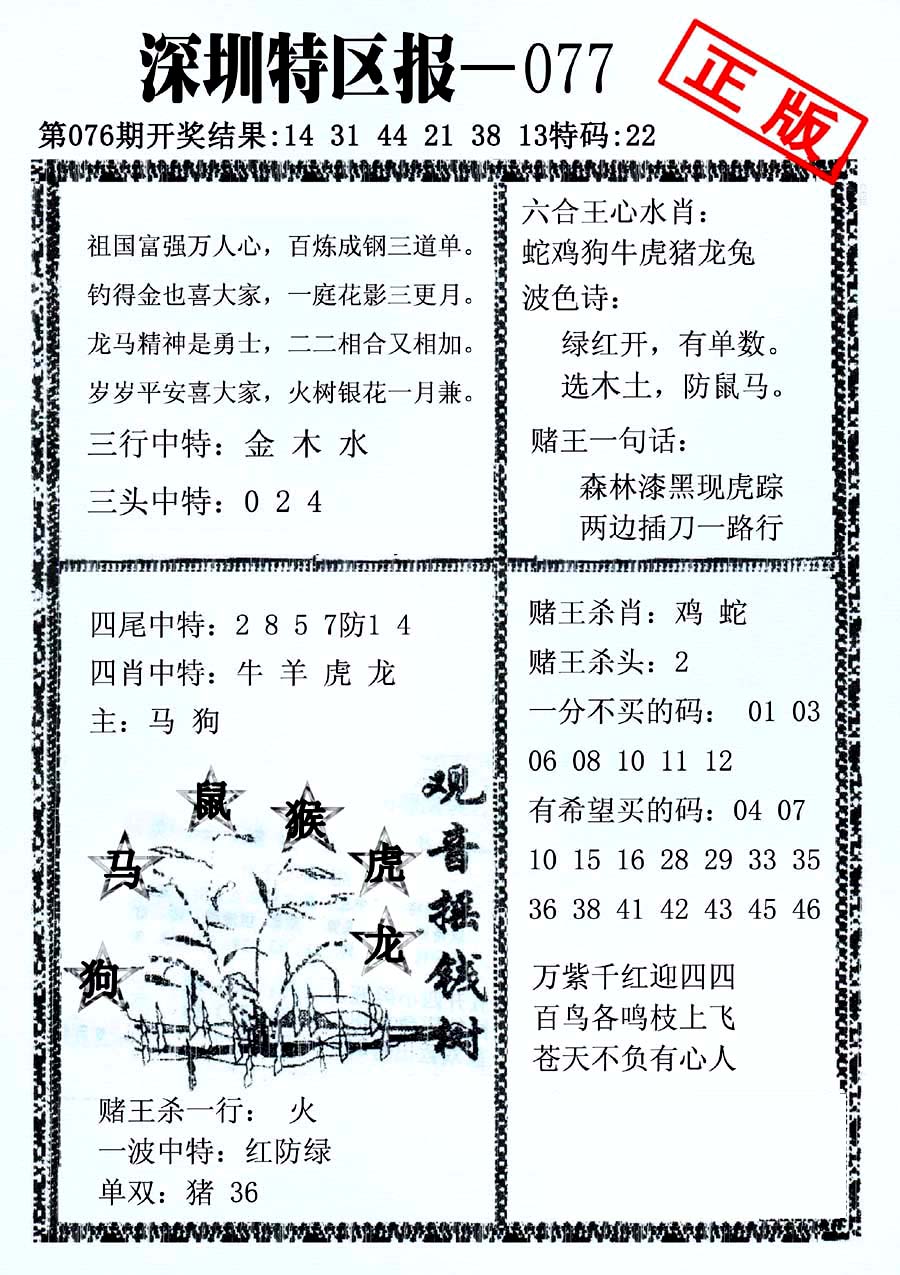 深圳特区报—077
正版
第076期开奖结果:14 31 44 21 38 13特码:22
祖国富强万人心，百炼成钢三道单。
钓得金也喜大家，一庭花影三更月。
龙马精神是勇士，二二相合又相加。
岁岁平安喜大家，火树银花一月兼。
三行中特：金 木 水
三头中特：0 2 4
六合王心水肖：
蛇鸡狗牛虎猪龙兔
波色诗：
绿红开，有单数。
选木土，防鼠马。
赌王一句话：
森林漆黑现虎踪
两边插刀一路行
四尾中特：2 8 5 7防1 4
四肖中特：牛 羊 虎 龙
主：马 狗
鼠
猴
马
虎
龙
狗
观音摇钱树
赌王杀一行： 火
一波中特：红防绿
单双：猪 36
赌王杀肖：鸡 蛇
赌王杀头：2
一分不买的码： 01 03
06 08 10 11 12
有希望买的码：04 07
10 15 16 28 29 33 35
36 38 41 42 43 45 46
万紫千红迎四四
百鸟各鸣枝上飞
苍天不负有心人